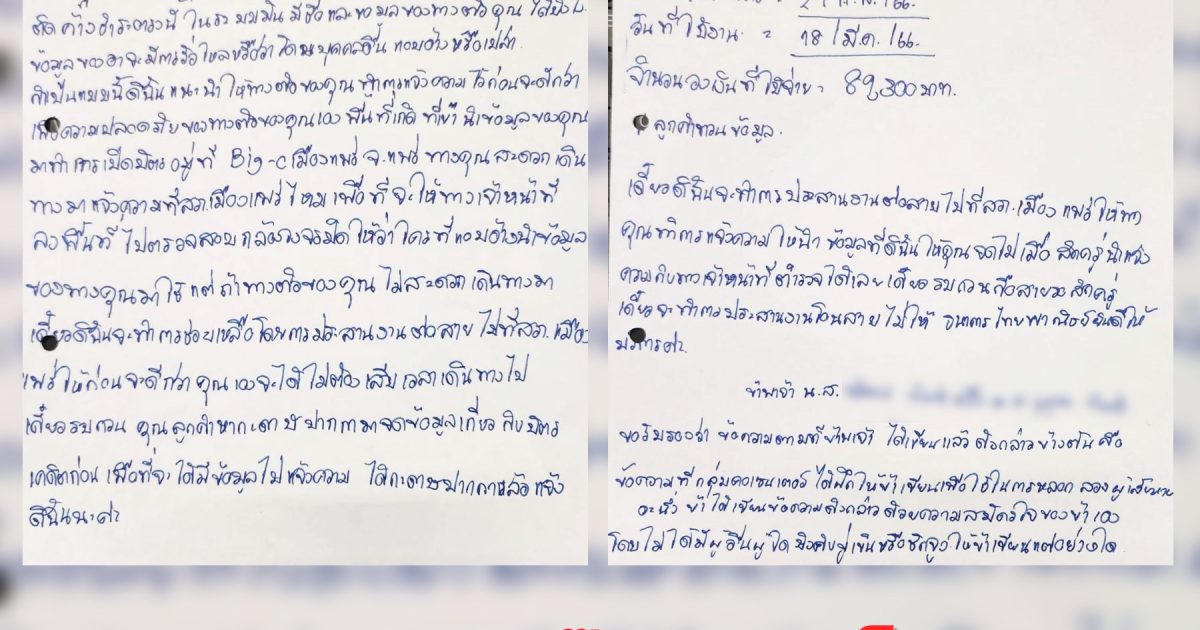 ติดค้างชำระตรงนี้ ในระบบมันมีชื่อและข้อมูลของทางตัวคุณ
ข้อมูลของอาจจะมีการรั่วไหลหรือว่าโดนบุคคลอื่นแอบอ้างหรือเปล่า
ถ้าเป็นแบบนี้ดิฉันแนะนำให้ทางตัวของคุณ ทำการแจ้งความไว้ก่อนจะดีกว่า
เพื่อความปลอดภัยของทางตัวของคุณเอง พื้นที่เกิด นำข้อมูลของคุณ
มาทำการเปิดบัตรอยู่ที่ Big-c เมืองแพร่ จ.แพร่ ทางคุณสะดวกเดิน
ทางมาแจ้งความที่สภ.เมืองแพร่ไหม เพื่อที่จะให้ทางเจ้าหน้าที่
ลงพื้นที่ ไปตรวจสอบกล้องวงจรปิดให้ว่าใครที่แอบอ้างนำข้อมูล
ของทางคุณมาใช้ แต่ถ้าทางตัวของคุณไม่สะดวกเดินทางมา
เดี๋ยวดิฉันจะทำการช่วยเหลือโดยการประสานงานต่อสายไปที่สภ.เมือง
แพร่ให้ก่อนจะดีกว่า คุณเองจะได้ไม่ต้องเสียเวลาเดินทางไป
เดี๋ยวรบกวน คุณลูกค้าหากระดาษปากกามาจดข้อมูลเกี่ยวกับบัตร
เครดิตก่อน เพื่อที่จะได้มีข้อมูลไปแจ้งความ ได้กระดาษปากกาแล้วแจ้ง
ดิฉันนะคะ
วันที่ใช้งาน = 18/มี.ค./66
จำนวนวงเงินที่ใช้จ่าย = 89,300 บาท.
ลูกค้าทวนข้อมูล.
เดี๋ยวดิฉันจะทำการประสานงานต่อสายไปที่สภ.เมืองแพร่ให้ทาง
คุณทำการแจ้งความให้นำข้อมูลที่ดิฉันให้คุณจดไปเมื่อสักครู่นี้แจ้ง
ความกับทางเจ้าหน้าที่ตำรวจได้เลย เดี๋ยวรบกวนถือสายรอสักครู่
เดี๋ยวจะทำการประสานงานโอนสายไปให้ ธนาคารไทยพาณิชย์ยินดีให้
บริการค่ะ.
ข้าพเจ้า น.ส.
ขอรับรองว่า ข้อความตามที่ข้าพเจ้า ได้เขียนแล้ว ดังกล่าวข้างต้น คือ
ข้อความที่กลุ่มคอเซนเตอร์ได้ฝึกให้ข้าเขียนเพื่อใช้ในการหลอกลวงผู้เสียหาย
อนึ่ง ข้าได้เขียนข้อความดังกล่าวด้วยความสมัครใจของข้าเอง
โดยไม่ได้มีผู้อื่นผู้ใดบังคับขู่เข็ญหรือชักจูงให้ข้าเขียนแต่อย่างใด